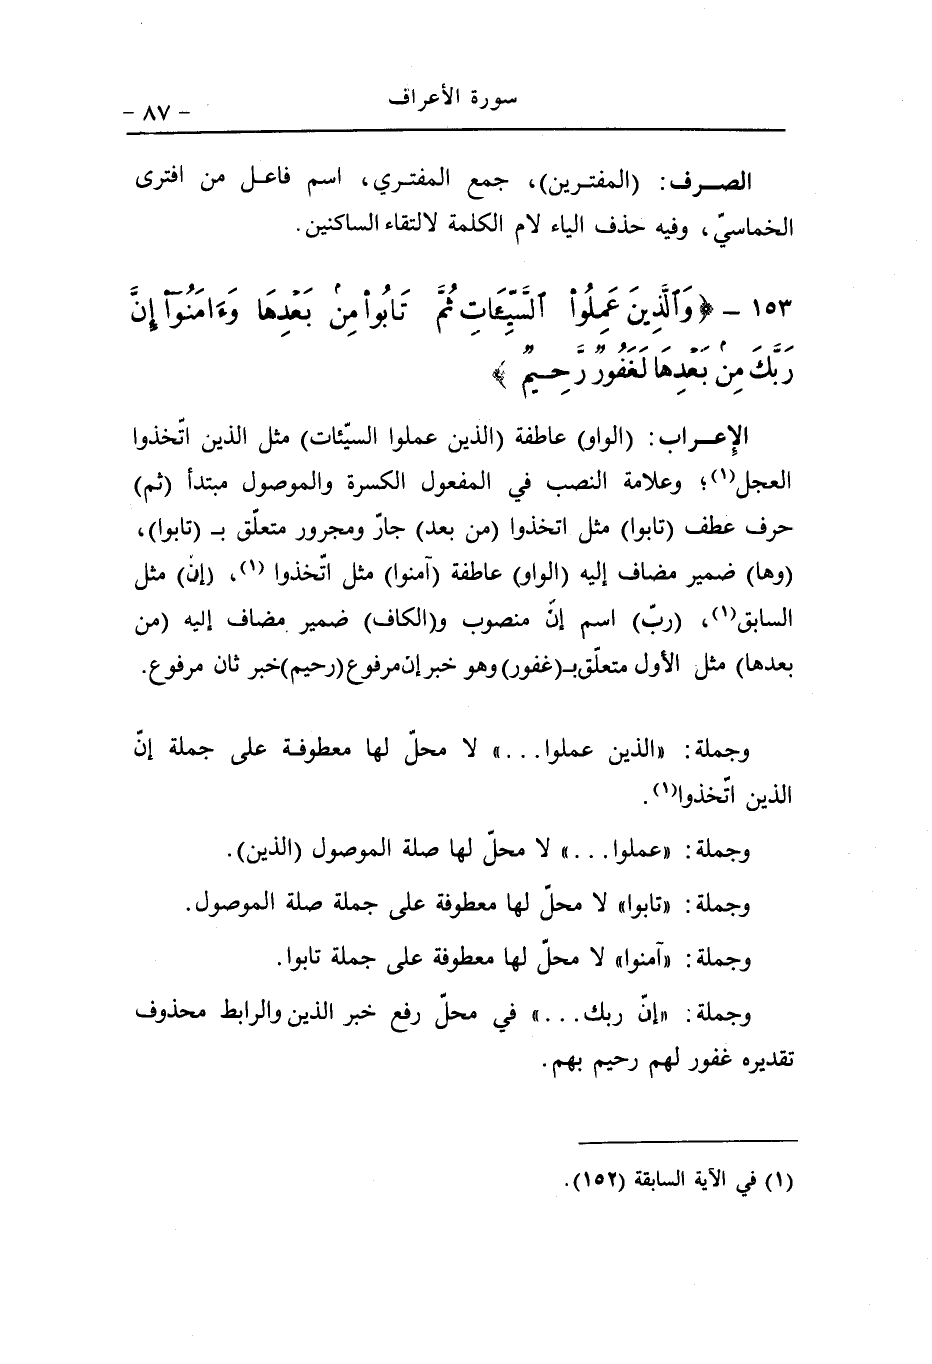 سورة الأعراف
- ٨٧ -
الصـرف: (المفتـرين)، جمع المفتـري، اسم فاعـل من افترى
الخماسيّ، وفيه حذف الياء لام الكلمة لالتقاء الساكنين.
١٥٣ - ﴿وَٱلَّذِينَ عَمِلُوا۟ ٱلسَّيِّـَٔاتِ ثُمَّ تَابُوا۟ مِنۢ بَعْدِهَا وَءَامَنُوٓا۟ إِنَّ
رَبَّكَ مِنۢ بَعْدِهَا لَغَفُورٌ رَّحِيمٌ﴾
الإعـراب: (الواو) عاطفة (الذين عملوا السيّئات) مثل الذين اتّخذوا
العجل(١)؛ وعلامة النصب في المفعول الكسرة والموصول مبتدأ (ثم)
حرف عطف (تابوا) مثل اتخذوا (من بعد) جارّ ومجرور متعلّق بـ (تابوا)،
(وها) ضمير مضاف إليه (الواو) عاطفة (آمنوا) مثل اتّخذوا (١)، (إن) مثل
السابق(١)، (ربّ) اسم إنّ منصوب و(الكاف) ضمير مضاف إليه (من
بعدها) مثل الأول متعلّق بـ(غفور) وهو خبر إن مرفوع (رحيم) خبر ثان مرفوع.
وجملة: «الذين عملوا...» لا محلّ لها معطوفـة على جملة إنّ
الذين اتّخذوا(١).
وجملة: «عملوا...» لا محلّ لها صلة الموصول (الذين).
وجملة: «تابوا» لا محلّ لها معطوفة على جملة صلة الموصول.
وجملة: «آمنوا» لا محلّ لها معطوفة على جملة تابوا.
وجملة: «إنّ ربك...» في محلّ رفع خبر الذين والرابط محذوف
تقديره غفور لهم رحيم بهم.
(١) في الآية السابقة (١٥٢).